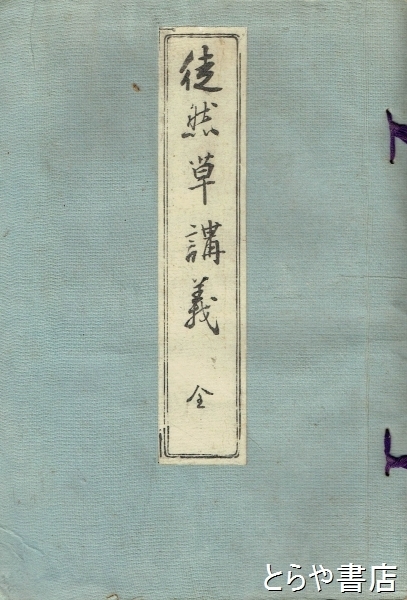 徒然草講義 全
とらや書店